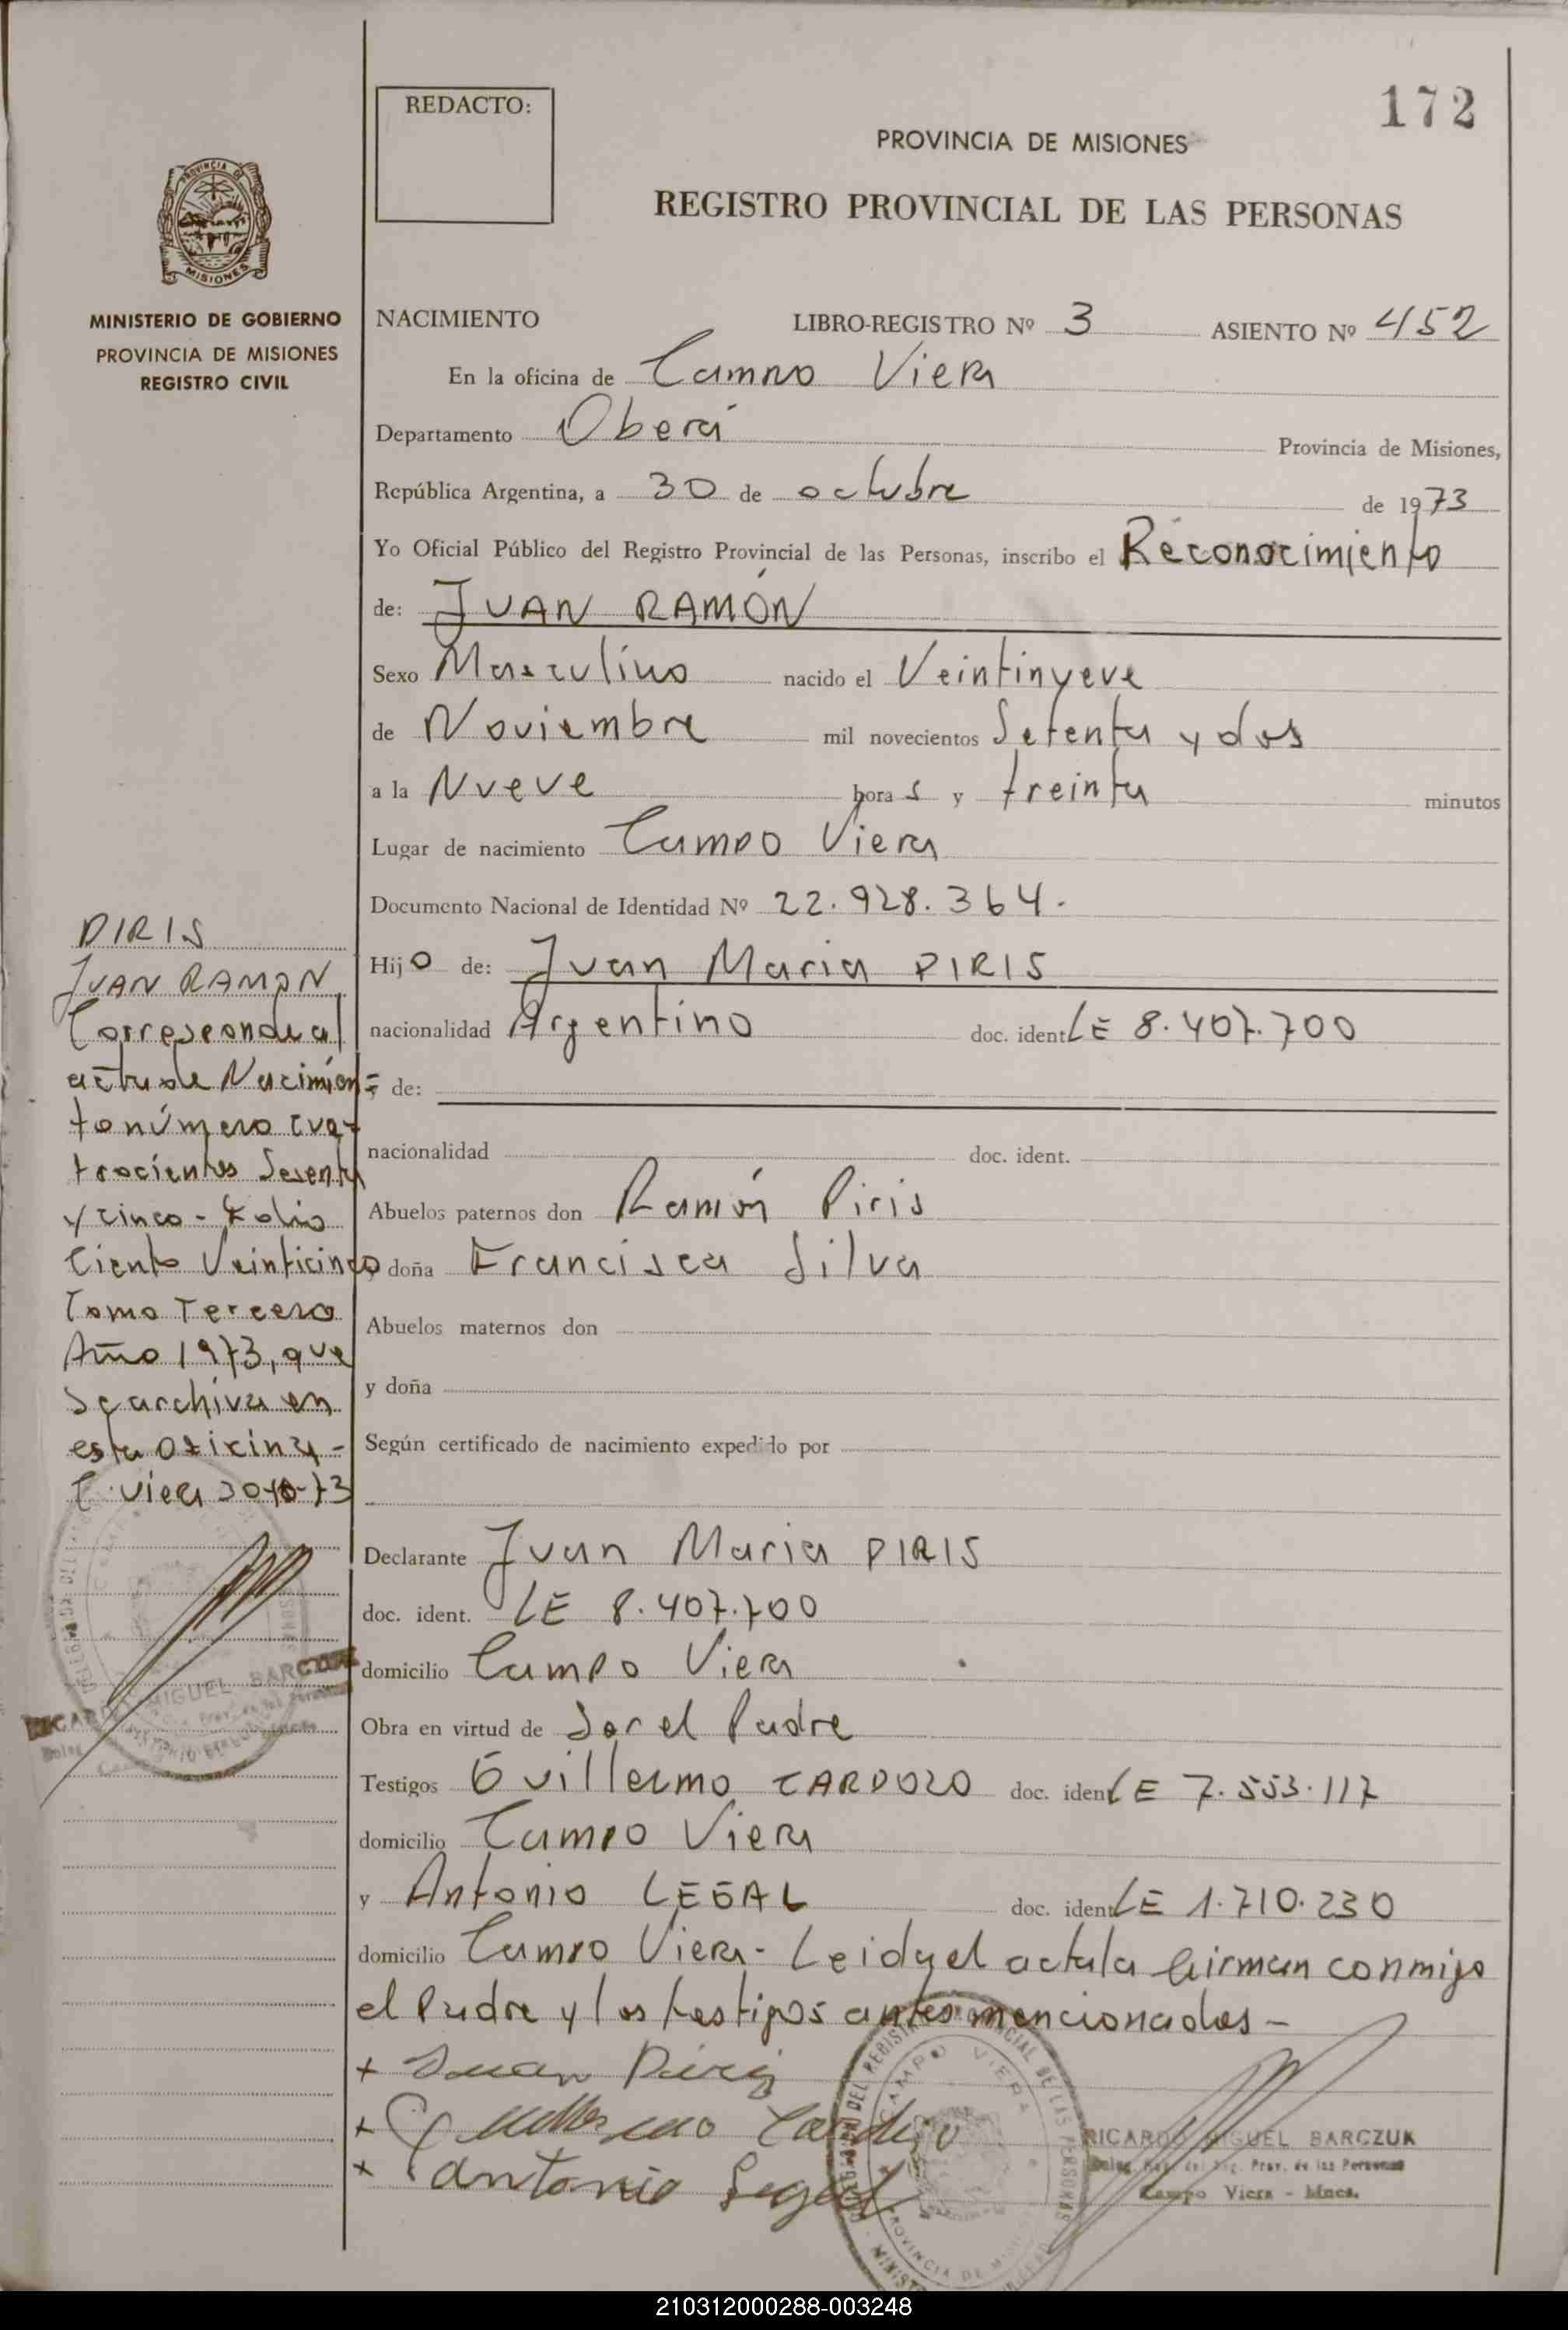 172
REDACTO:
PROVINCIA DE MISIONES
REGISTRO PROVINCIAL DE LAS PERSONAS
PROVINCIA DE
MISIONES
MINISTERIO DE GOBIERNO
PROVINCIA DE MISIONES
REGISTRO CIVIL
NACIMIENTO LIBRO-REGISTRO Nº 3 ASIENTO Nº 452
En la oficina de Campo Viera
Departamento Oberá Provincia de Misiones,
República Argentina, a 30 de octubre de 1973
Yo Oficial Público del Registro Provincial de las Personas, inscribo el Reconocimiento
de: JUAN RAMÓN
Sexo Masculino nacido el Veintinueve
de Noviembre mil novecientos Setenta y dos
a la Nueve hora s y treinta minutos
Lugar de nacimiento Campo Viera
Documento Nacional de Identidad Nº 22.928.364.
Hijo de: Juan Maria PIRIS
nacionalidad Argentino doc. ident. LE 8.407.700
y de:
nacionalidad doc. ident.
Abuelos paternos don Ramón Piris
y doña Francisca Silva
Abuelos maternos don
y doña
Según certificado de nacimiento expedido por
Declarante Juan Maria PIRIS
doc. ident. LE 8.407.700
domicilio Campo Viera
Obra en virtud de Ser el Padre
Testigos Guillermo CARDOZO doc. ident. LE 7.553.117
domicilio Campo Viera
y Antonio LEGAL doc. ident. LE 1.710.230
domicilio Campo Viera - Leida el acta la firman conmigo
el Padre y los testigos antes mencionados -
+ Juan Piris
+ Guillermo Cardozo
+ Antonio Legal
RICARDO MIGUEL BARCZUK
Prov. de las Personas
Campo Viera - Mnes.
DEL REGISTRO PROVINCIAL DE LAS PERSONAS
CAMPO VIERA
PROVINCIA DE
PIRIS
JUAN RAMON
Corresponde al
acta de Nacimien=
to número cua-
trocientos Sesenta
y cinco - Folio
Ciento Veinticinco
Tomo Tercero
Año 1973, que
se archiva en
esta Oficina -
C. Viera 30-10-73
RICARDO MIGUEL BARCZUK
210312000288-003248